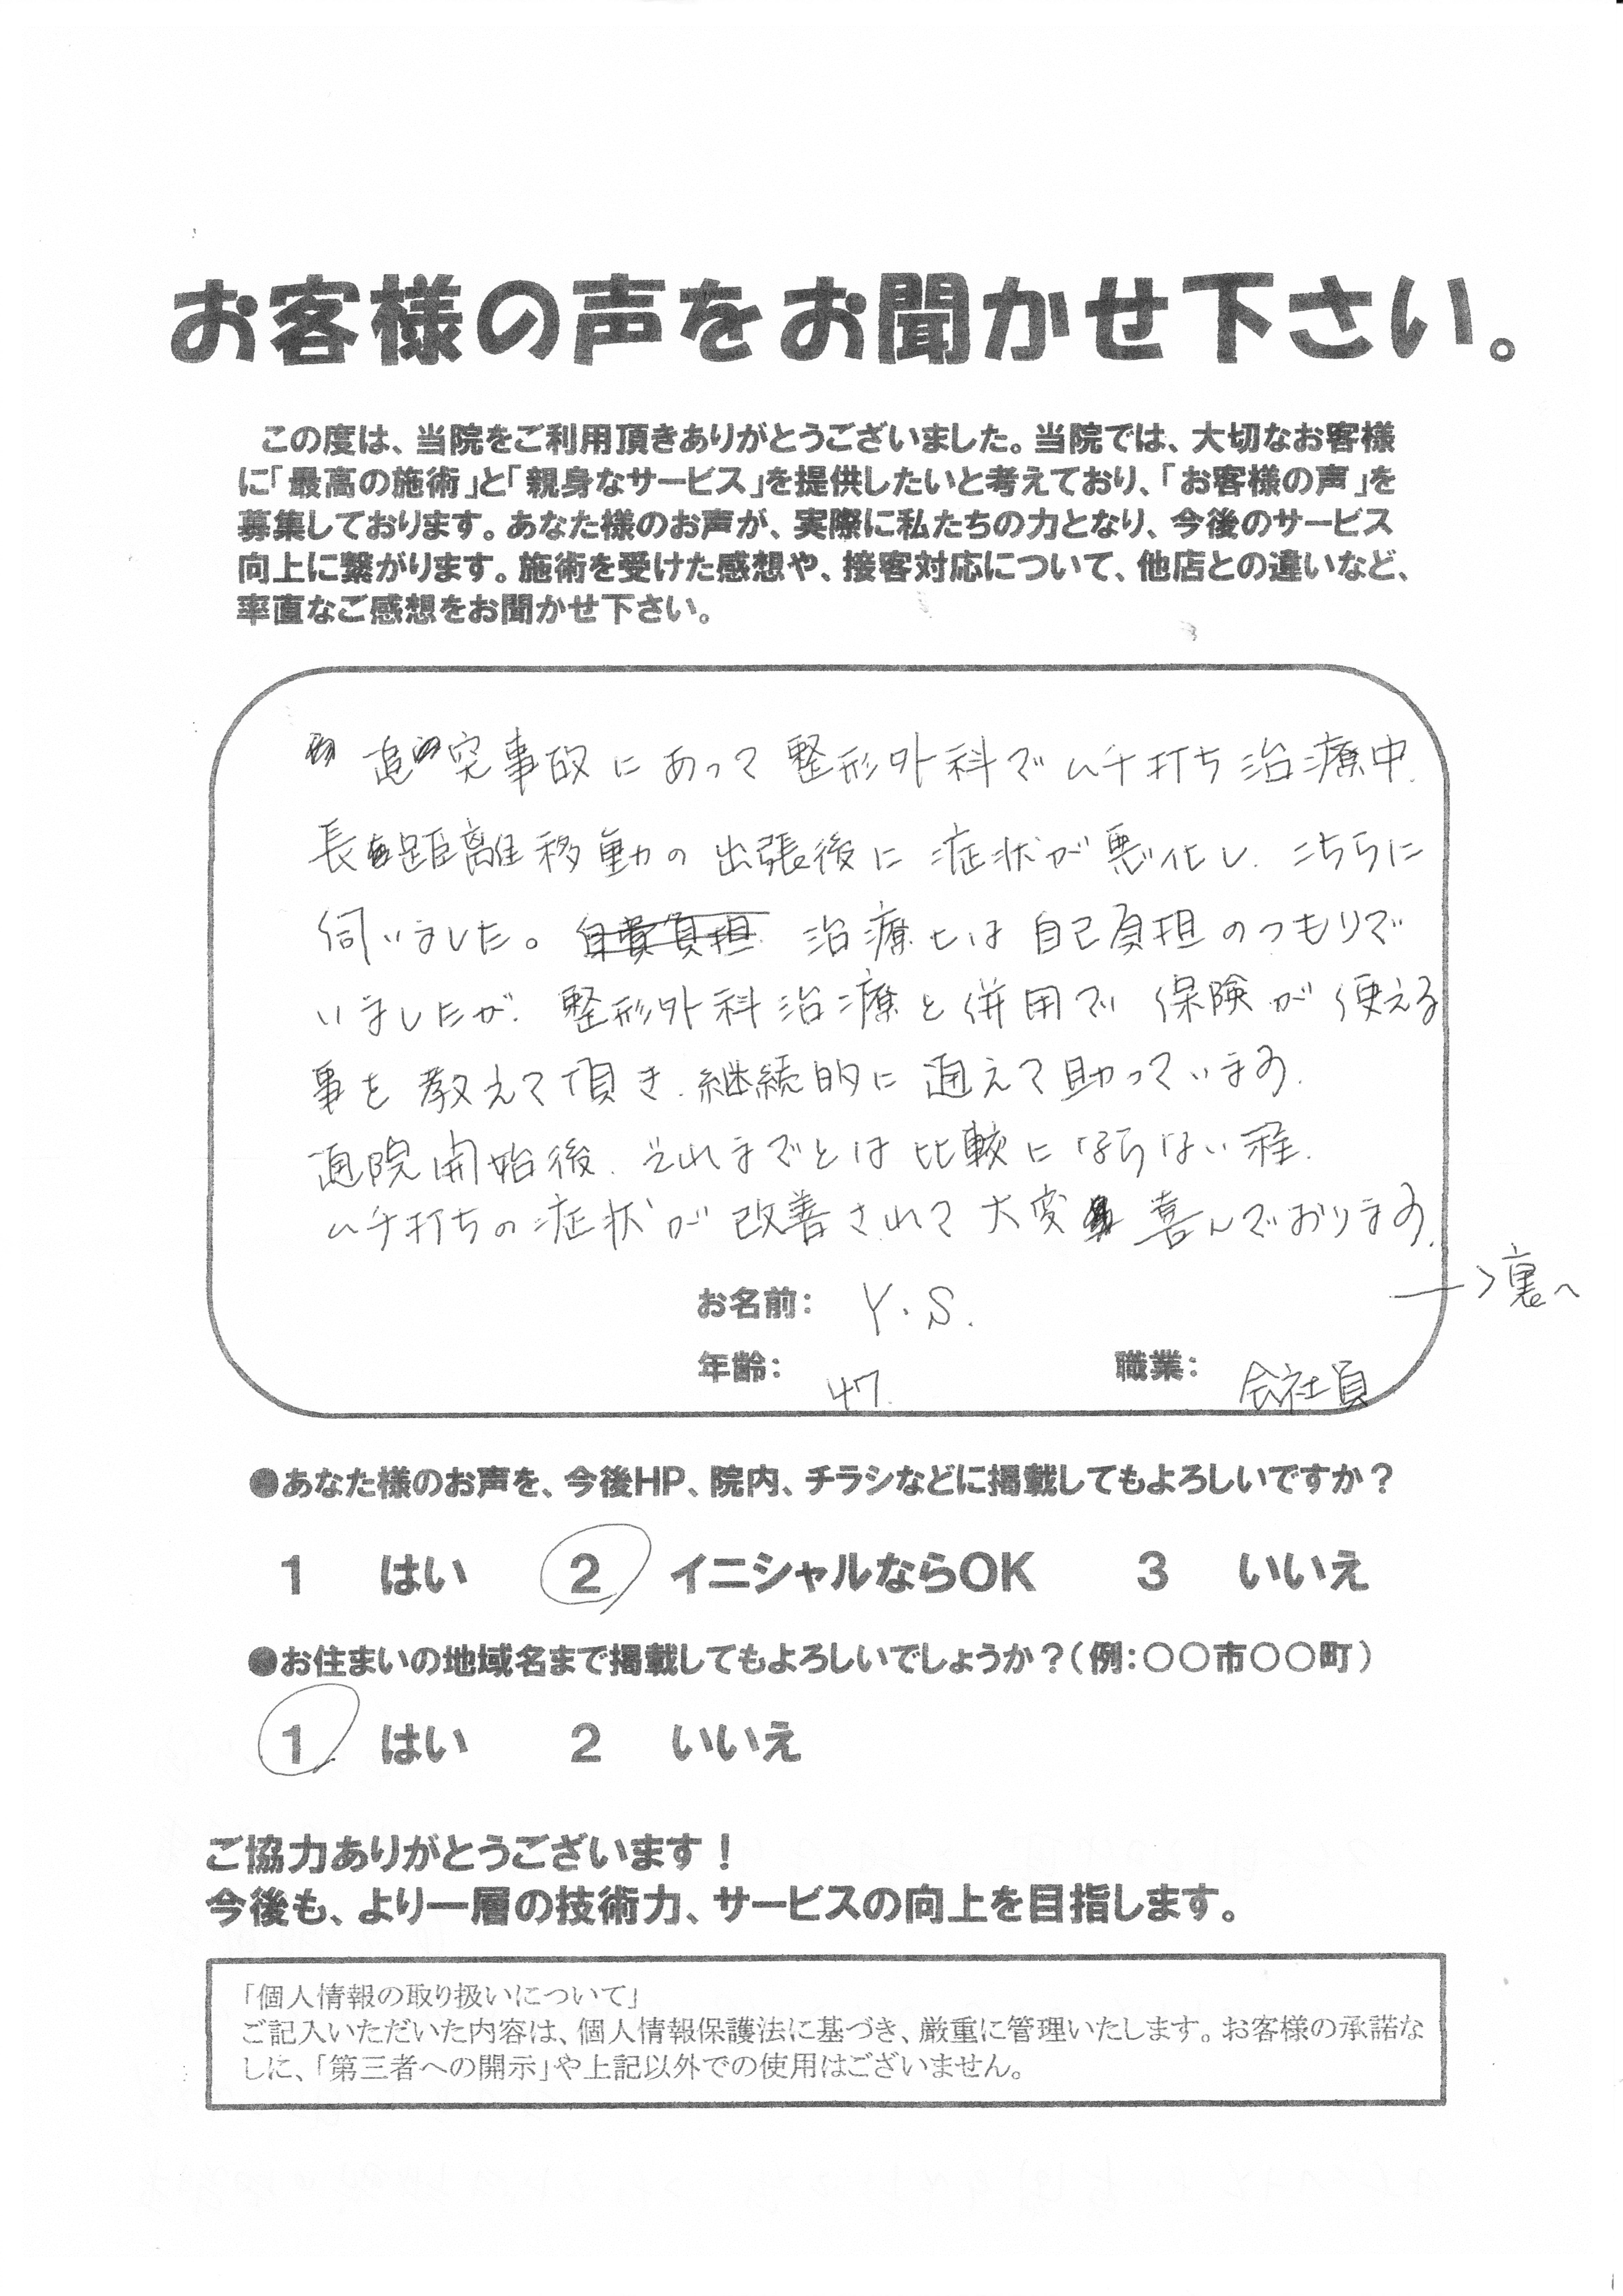 お客様の声をお聞かせ下さい。
この度は、当院をご利用頂きありがとうございました。当院では、大切なお客様
に「最高の施術」と「親身なサービス」を提供したいと考えており、「お客様の声」を
募集しております。あなた様のお声が、実際に私たちの力となり、今後のサービス
向上に繋がります。施術を受けた感想や、接客対応について、他店との違いなど、
率直なご感想をお聞かせ下さい。
追突事故にあって整形外科でムチ打ち治療中、
長距離移動の出張後に症状が悪化し、こちらに
伺いました。自費負担 治療は自己負担のつもりで
いましたが、整形外科治療と併用で保険が使える
事を教えて頂き、継続的に通えて助っています。
通院開始後、それまでとは比較にならない程、
ムチ打ちの症状が改善されて大変喜んでおります。
→裏へ
お名前: Y.S.
年齢: 47. 職業: 会社員
●あなた様のお声を、今後HP、院内、チラシなどに掲載してもよろしいですか？
1 はい 2 イニシャルならOK 3 いいえ
●お住まいの地域名まで掲載してもよろしいでしょうか？（例：○○市○○町）
1 はい 2 いいえ
ご協力ありがとうございます！
今後も、より一層の技術力、サービスの向上を目指します。
「個人情報の取り扱いについて」
ご記入いただいた内容は、個人情報保護法に基づき、厳重に管理いたします。お客様の承諾な
しに、「第三者への開示」や上記以外での使用はございません。